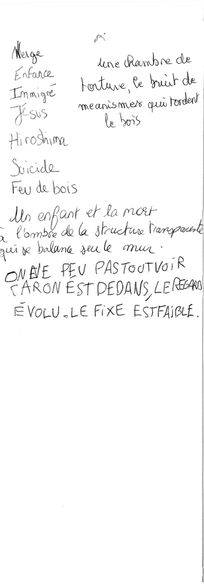 Neige
Enfance
Immigré
Jésus
Hiroshima
Suicide
Feu de bois
une chambre de
torture, le bruit de
meanismes qui tordent
le bois
Un enfant et la mort
à l'ombre de la structure transparente
qui se balance sur le mur.
ON NE PEU PAS TOUT VOIR
CAR ON EST DEDANS, LE REGARD
ÉVOLU. LE FIXE EST FAIBLE.